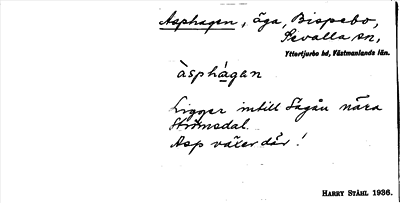 Asphagen, äga, Bispebo,
Sevalla sn,
Yttertjurbo hd, Västmanlands län.
àsphágen
Ligger intill Sågån nära
Strömsdal.
Asp växer där!
HARRY STÅHL 1936.